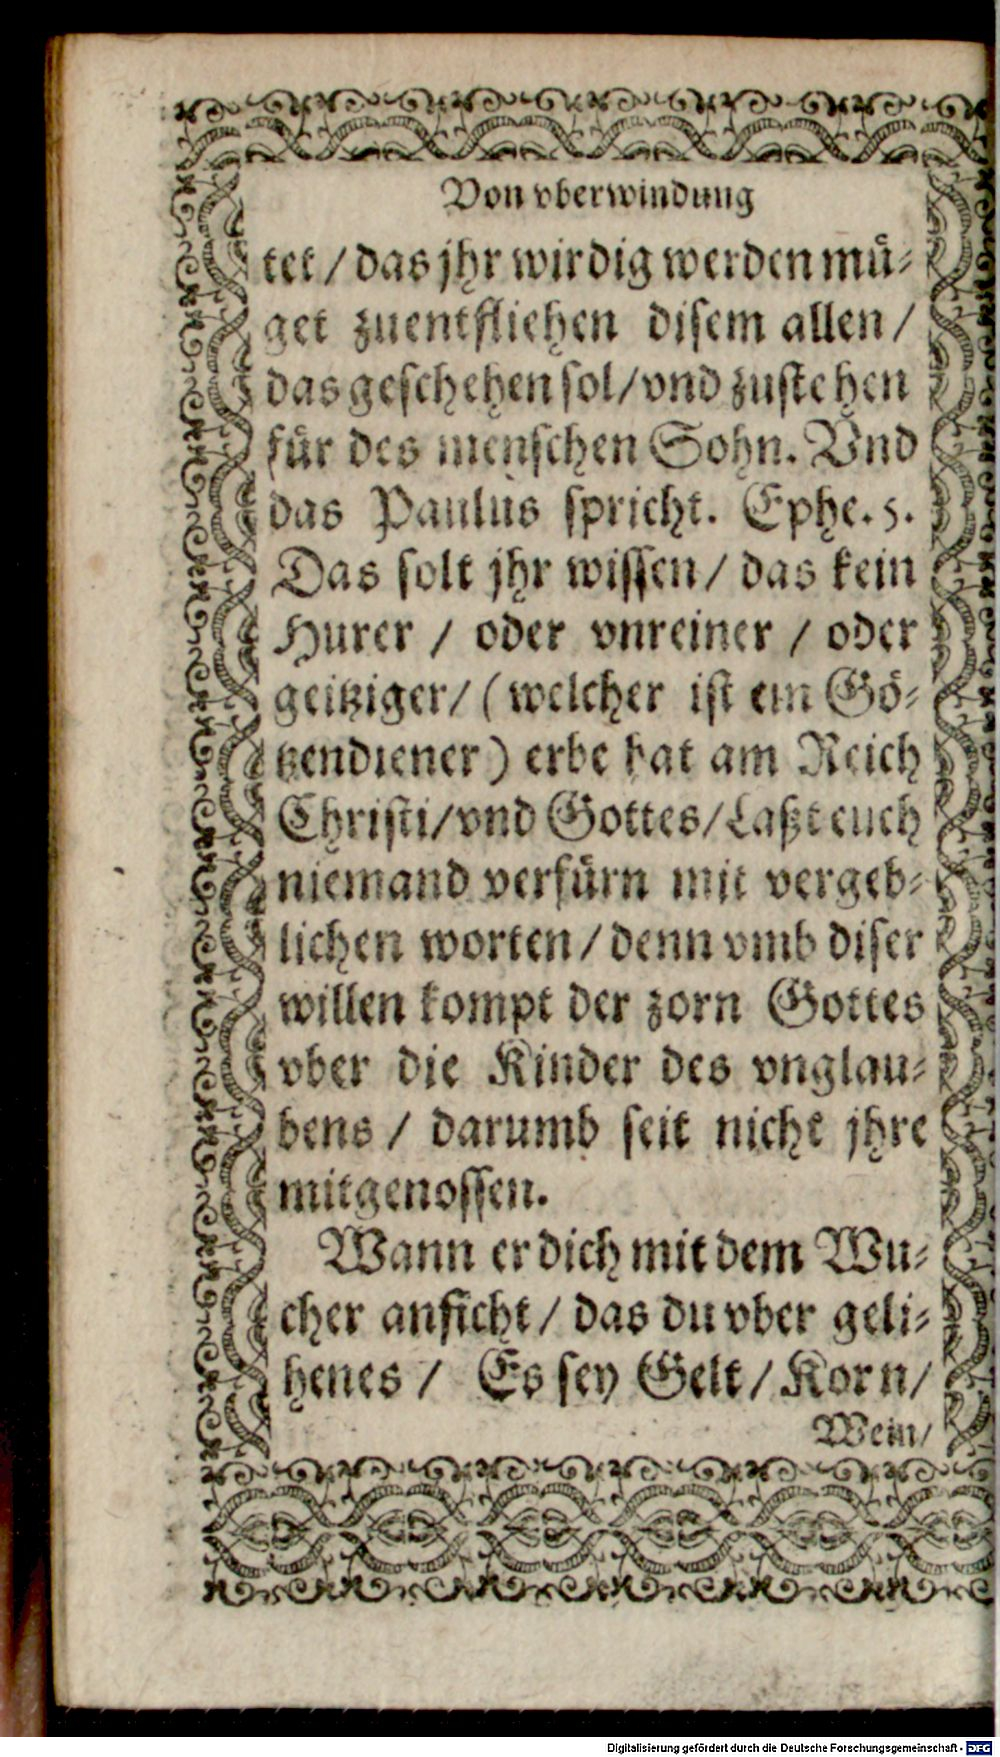 Von vberwindung
tet / das jhr wirdig werden mü-
get zuentfliehen disem allen /
das geschehen sol / vnd zustehen
für des menschen Sohn. Vnd
das Paulus spricht. Ephe. 5.
Das solt jhr wissen / das kein
Hurer / oder vnreiner / oder
geitziger / ( welcher ist ein Gö-
tzendiener ) erbe hat am Reich
Christi / vnd Gottes / Laßt euch
niemand verfürn mit vergeb-
lichen worten / denn vmb diser
willen kompt der zorn Gottes
vber die Kinder des vnglau-
bens / darumb seit nicht jhre
mitgenossen.
Wann er dich mit dem Wu-
cher anficht / das du vber geli-
henes / Es sey Gelt / Korn /
Wein /
Digitalisierung gefördert durch die Deutsche Forschungsgemeinschaft - DFG